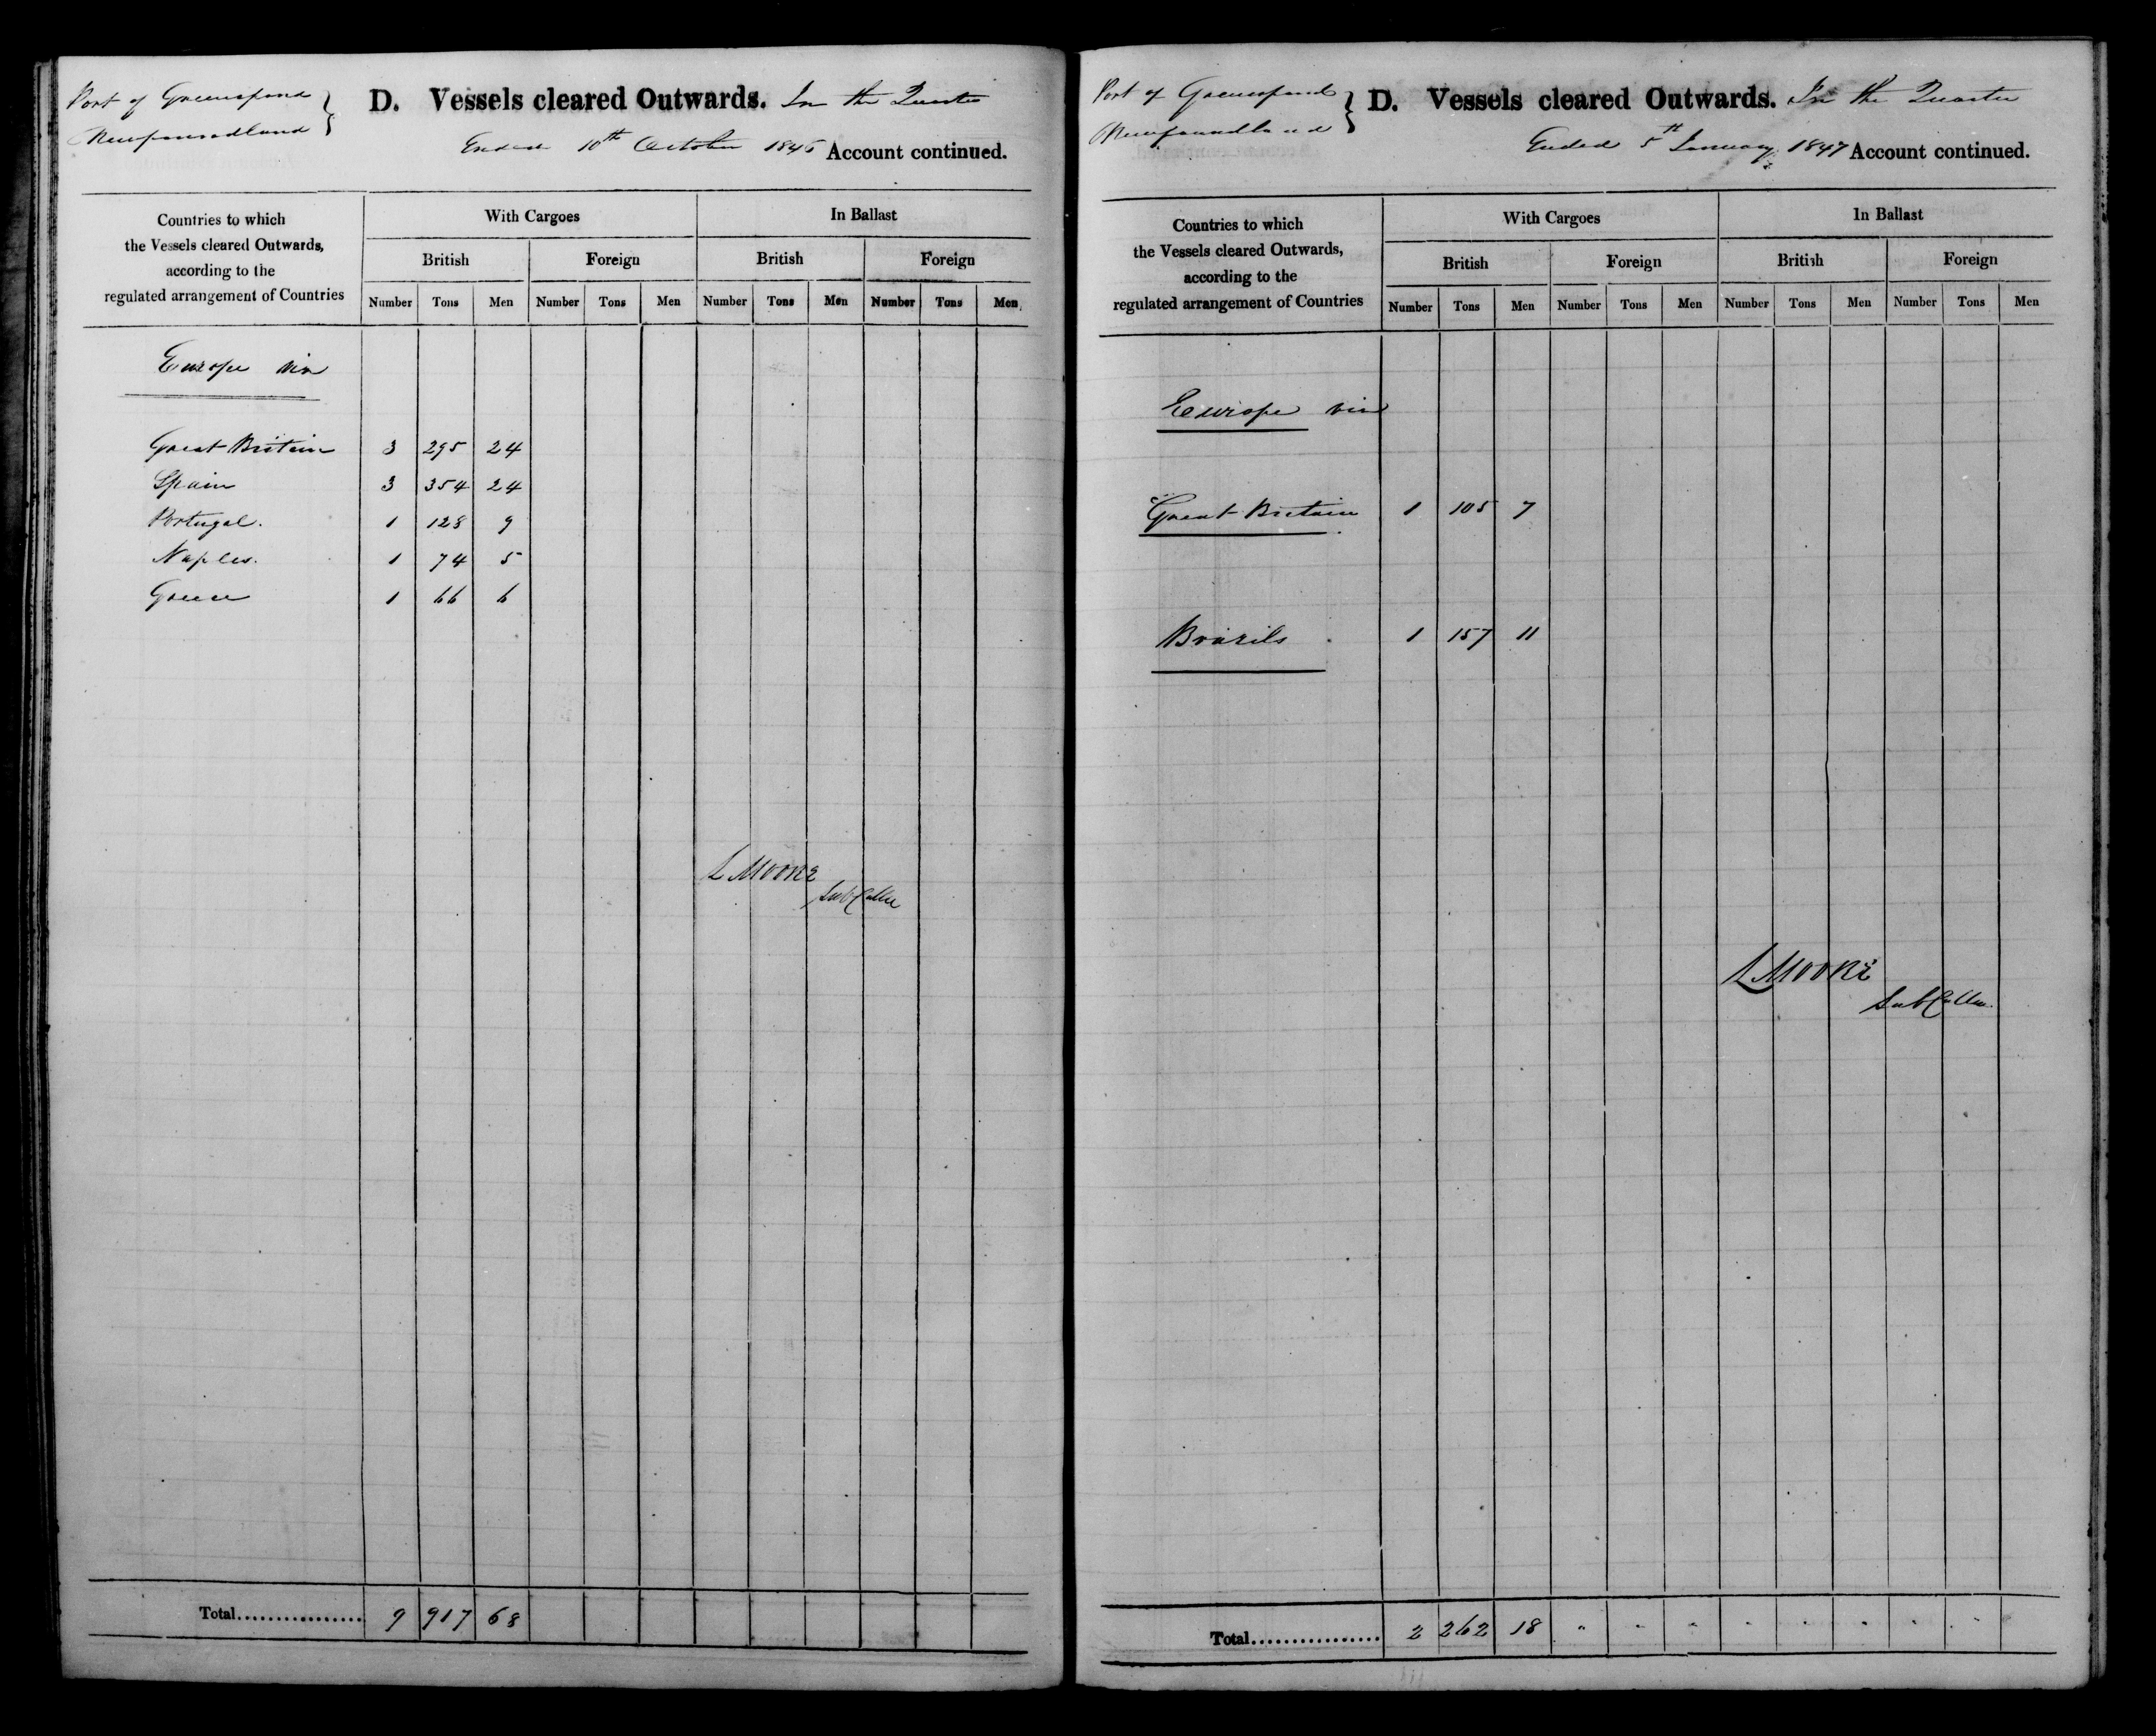 Port of Greenspond
Newfoundland }
D. Vessels cleared Outwards. In the Quarter
Ended 10th October 1846 Account continued.
Countries to which
the Vessels cleared Outwards,
according to the
regulated arrangement of Countries
With Cargoes In Ballast
British Foreign British Foreign
Number Tons Men Number Tons Men Number Tons Men Number Tons Men
Europe viz
Great Britain 3 295 24
Spain 3 354 24
Portugal. 1 128 9
Naples. 1 74 5
Greece 1 66 6
L Moore
Sub Collr
Total................ 9 917 68
Port of Greenspond
Newfoundland }
D. Vessels cleared Outwards. In the Quarter
Ended 5th January 1847 Account continued.
Countries to which
the Vessels cleared Outwards,
according to the
regulated arrangement of Countries
With Cargoes In Ballast
British Foreign British Foreign
Number Tons Men Number Tons Men Number Tons Men Number Tons Men
Europe viz
Great Britain 1 105 7
Brazils 1 157 11
L Moore
Sub Collr.
Total................ 2 262 18 " " " " " " " "